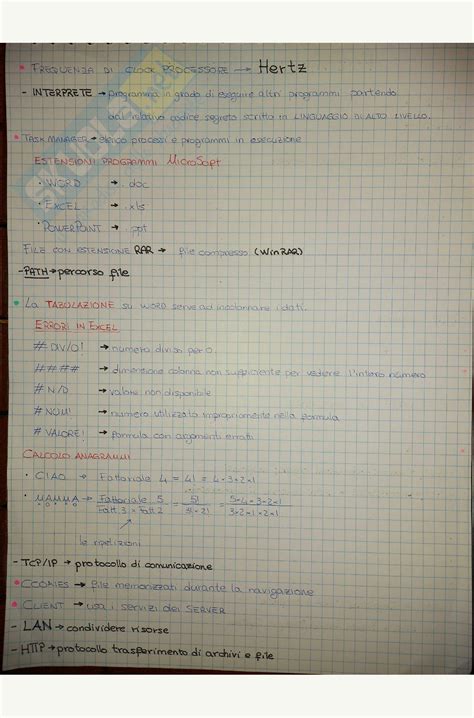 • FREQUENZA DI CLOCK PROCESSORE → Hertz
- INTERPRETE → programma in grado di eseguire altri programmi partendo
dal relativo codice segreto scritto in LINGUAGGIO DI ALTO LIVELLO.
• TASK MANAGER → elenco processi e programmi in esecuzione
ESTENSIONI PROGRAMMI MicroSoft
· WORD → .doc
· EXCEL → .xls
· POWERPOINT → .ppt
FILE CON ESTENSIONE RAR → file compresso (WinRAR)
- PATH → percorso file
• La TABULAZIONE su WORD serve ad incolonnare i dati.
ERRORI IN EXCEL
# DIV/0! → numero diviso per 0.
#### → dimensione colonna non sufficiente per vedere l'intero numero
# N/D → valore non disponibile
# NUM! → numero utilizzato impropriamente nella formula
# VALORE! → formula con argomenti errati
CALCOLO ANAGRAMMI
· CIAO → Fattoriale 4 = 4! = 4×3×2×1
· MAMMA → Fattoriale 5 / Fatt 3 × Fatt 2 = 5! / 3! × 2! = 5×4×3×2×1 / 3×2×1×2×1
le ripetizioni
- TCP/IP → protocollo di comunicazione
• COOKIES → file memorizzati durante la navigazione
• CLIENT → usa i servizi dei SERVER
- LAN → condividere risorse
- HTTP → protocollo trasferimento di archivi e file